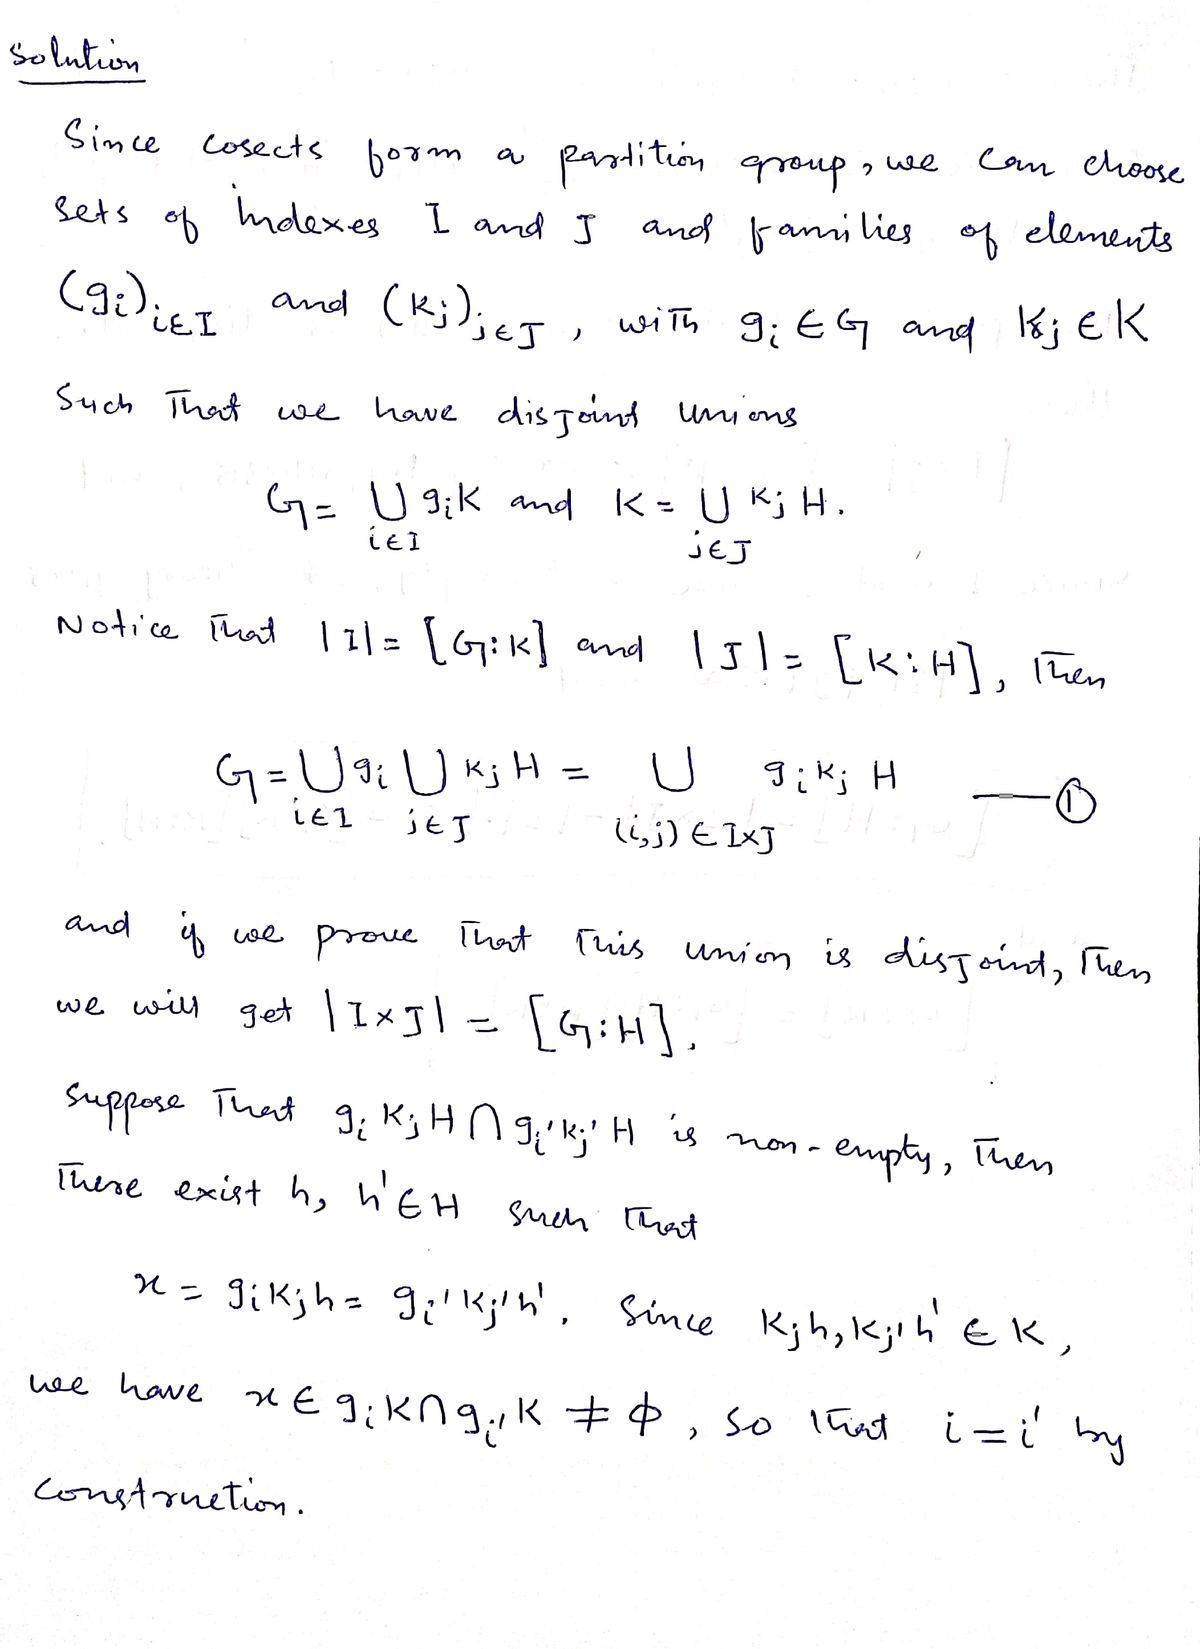 Solution
Since cosects form a partition group, we can choose
sets of indexes I and J and families of elements
(gᵢ)ᵢ∈I and (kⱼ)ⱼ∈J, with gᵢ ∈ G and kⱼ ∈ K
Such that we have disjoint unions
G = ⋃ gᵢK and K = ⋃ kⱼ H.
i∈I j∈J
Notice that |I| = [G:K] and |J| = [K:H], then
G = ⋃ gᵢ ⋃ kⱼ H = ⋃ gᵢkⱼ H —①
i∈I j∈J (i,j) ∈ I×J
and if we prove that this union is disjoint, then
we will get |I×J| = [G:H].
Suppose that gᵢ kⱼ H ∩ gᵢ'kⱼ' H is non-empty, then
there exist h, h' ∈ H such that
x = gᵢkⱼh = gᵢ'kⱼ'h'. Since kⱼh, kⱼ'h' ∈ K,
we have x ∈ gᵢK∩gᵢ'K ≠ ϕ, so that i = i' by
construction.